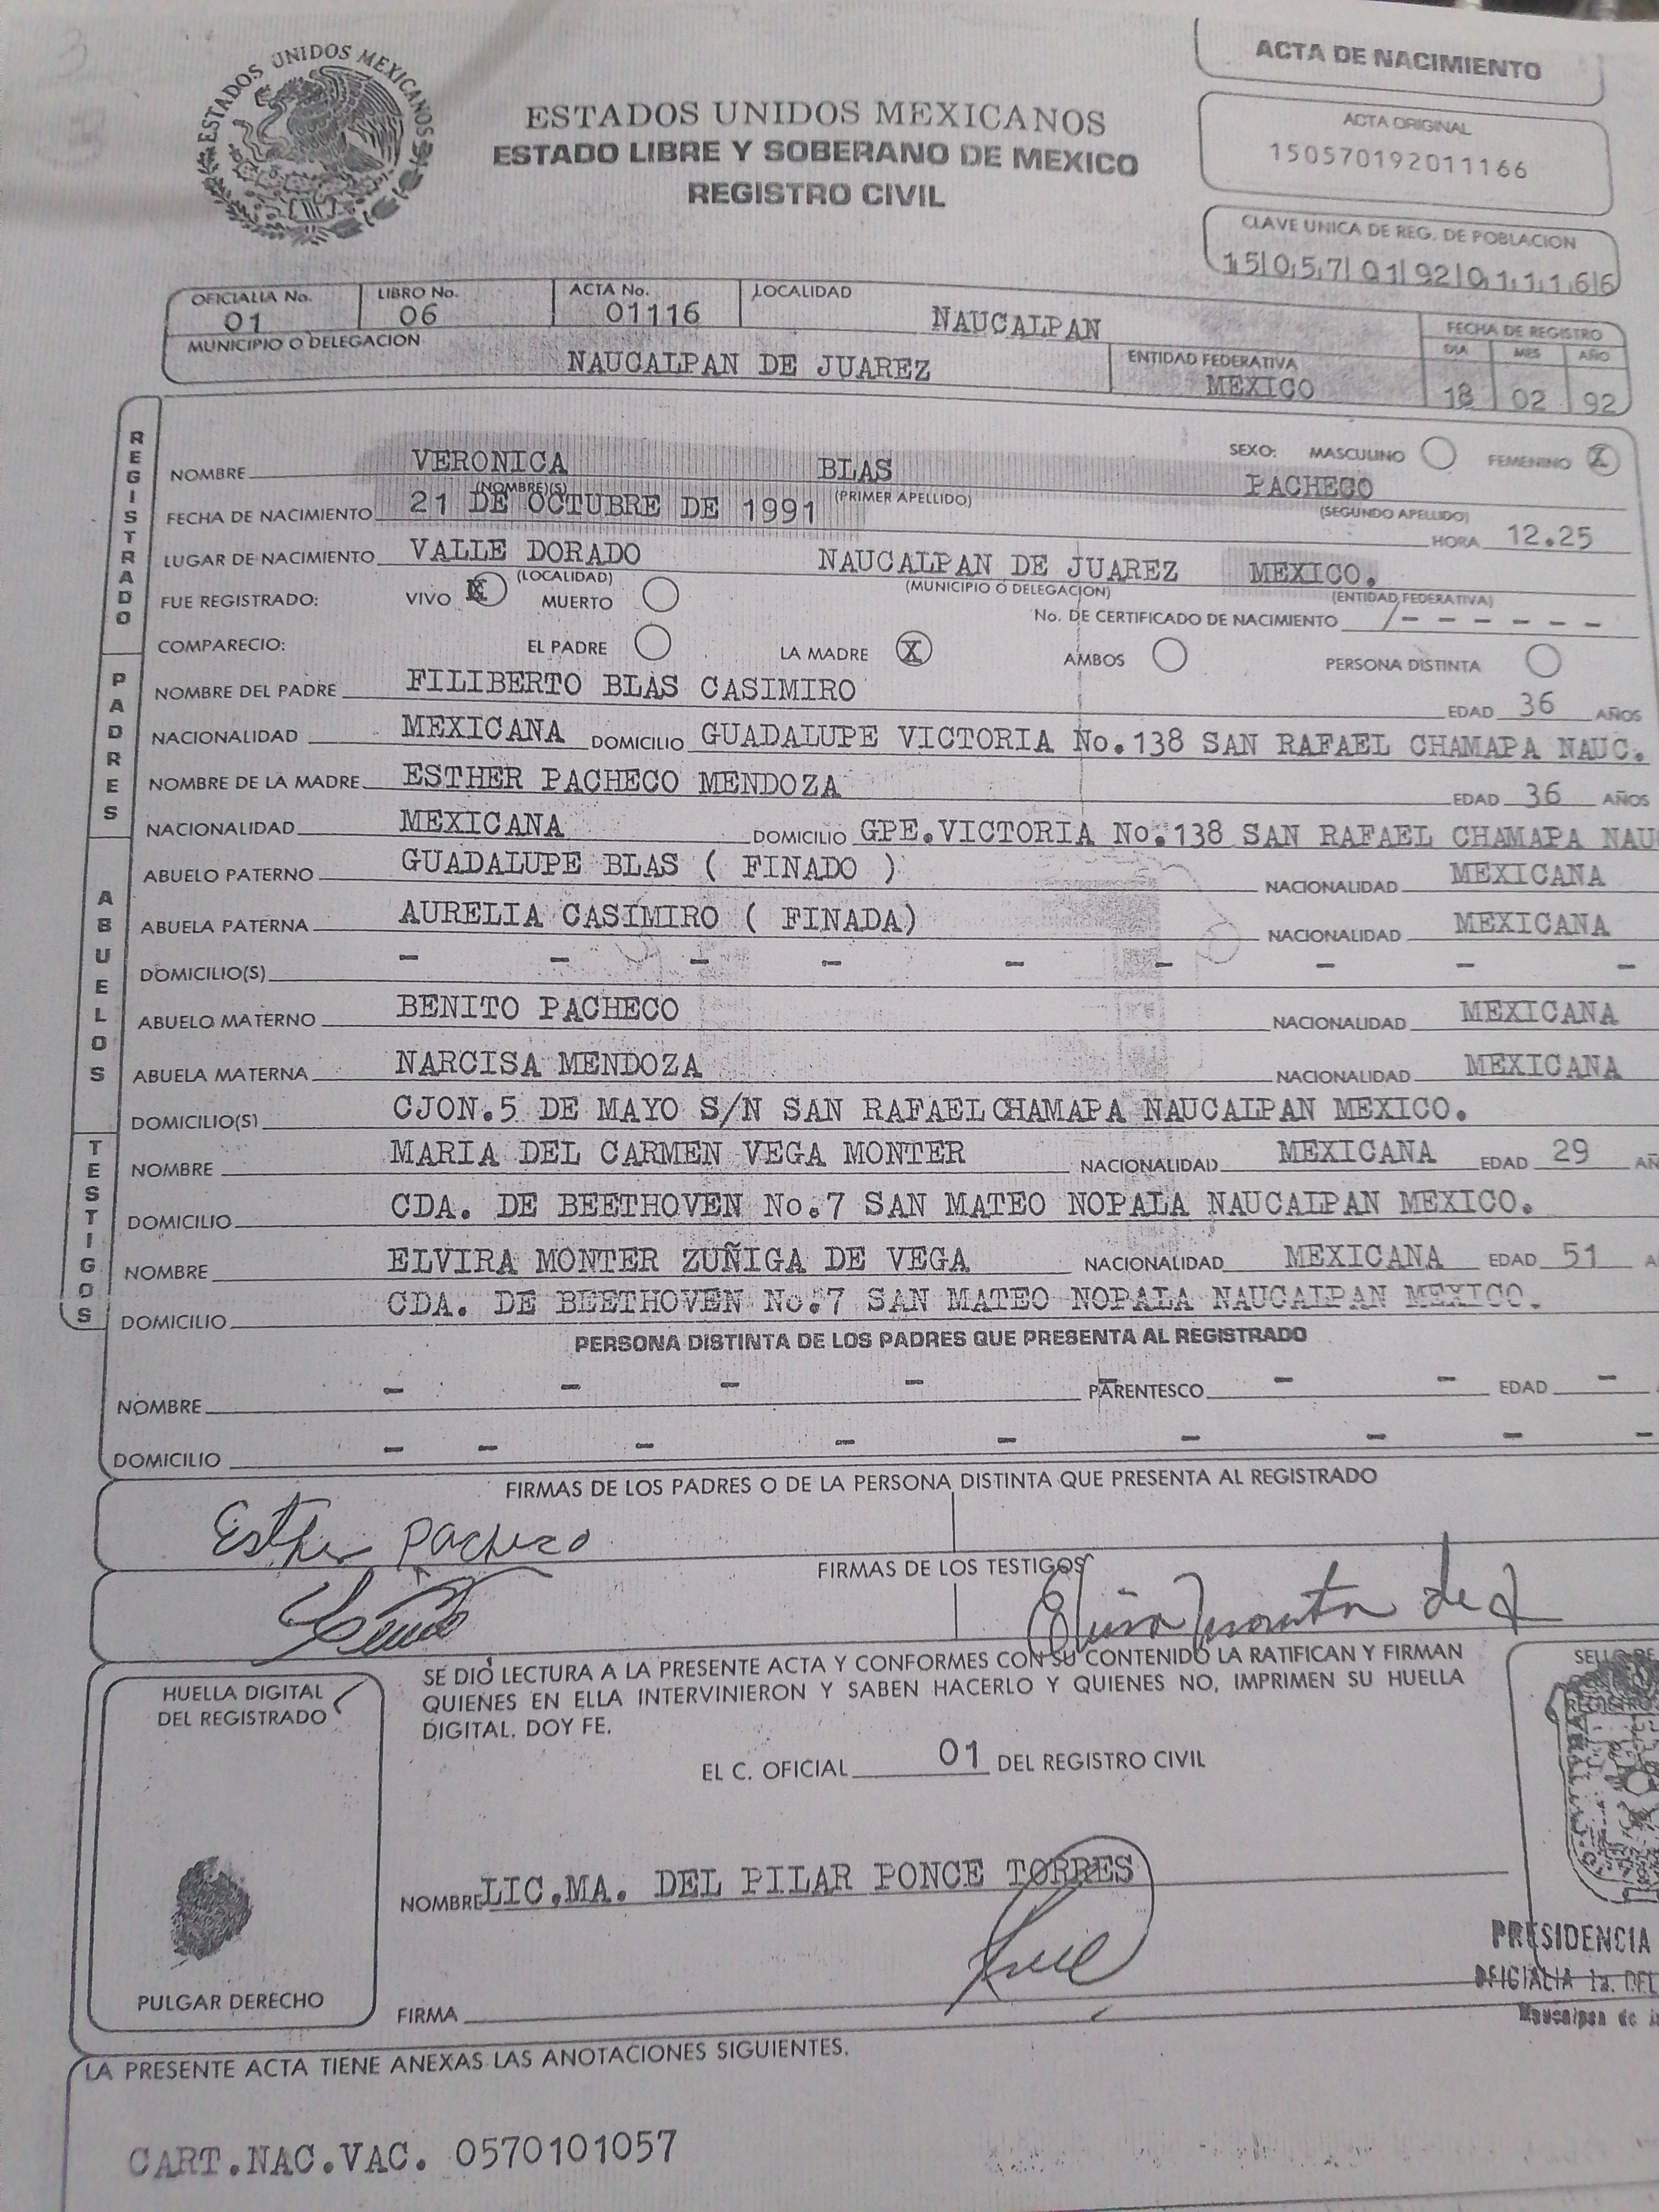 ESTADOS UNIDOS MEXICANOS
ACTA DE NACIMIENTO
ESTADOS UNIDOS MEXICANOS
ESTADO LIBRE Y SOBERANO DE MEXICO
REGISTRO CIVIL
ACTA ORIGINAL
150570192011166
CLAVE UNICA DE REG. DE POBLACION
150570192011166
OFICIALIA No. 01 LIBRO No. 06 ACTA No. 01116 LOCALIDAD NAUCALPAN
MUNICIPIO O DELEGACION NAUCALPAN DE JUAREZ ENTIDAD FEDERATIVA MEXICO
FECHA DE REGISTRO
DIA MES AÑO
18 02 92
REGISTRADO
NOMBRE VERONICA BLAS PACHECO
(NOMBRE)(S) (PRIMER APELLIDO) (SEGUNDO APELLIDO)
SEXO: MASCULINO FEMENINO X
FECHA DE NACIMIENTO 21 DE OCTUBRE DE 1991 HORA 12.25
LUGAR DE NACIMIENTO VALLE DORADO NAUCALPAN DE JUAREZ MEXICO.
(LOCALIDAD) (MUNICIPIO O DELEGACION) (ENTIDAD FEDERATIVA)
FUE REGISTRADO: VIVO X MUERTO No. DE CERTIFICADO DE NACIMIENTO / - - - - - -
COMPARECIO: EL PADRE LA MADRE X AMBOS PERSONA DISTINTA
PADRES
NOMBRE DEL PADRE FILIBERTO BLAS CASIMIRO EDAD 36 AÑOS
NACIONALIDAD MEXICANA DOMICILIO GUADALUPE VICTORIA No.138 SAN RAFAEL CHAMAPA NAUC.
NOMBRE DE LA MADRE ESTHER PACHECO MENDOZA EDAD 36 AÑOS
NACIONALIDAD MEXICANA DOMICILIO GPE.VICTORIA No.138 SAN RAFAEL CHAMAPA NAU
ABUELOS
ABUELO PATERNO GUADALUPE BLAS ( FINADO ) NACIONALIDAD MEXICANA
ABUELA PATERNA AURELIA CASIMIRO ( FINADA) NACIONALIDAD MEXICANA
DOMICILIO(S) - - - - - - - - -
ABUELO MATERNO BENITO PACHECO NACIONALIDAD MEXICANA
ABUELA MATERNA NARCISA MENDOZA NACIONALIDAD MEXICANA
DOMICILIO(S) CJON.5 DE MAYO S/N SAN RAFAEL CHAMAPA NAUCALPAN MEXICO.
TESTIGOS
NOMBRE MARIA DEL CARMEN VEGA MONTER NACIONALIDAD MEXICANA EDAD 29 AÑ
DOMICILIO CDA. DE BEETHOVEN No.7 SAN MATEO NOPALA NAUCALPAN MEXICO.
NOMBRE ELVIRA MONTER ZUÑIGA DE VEGA NACIONALIDAD MEXICANA EDAD 51 A
DOMICILIO CDA. DE BEETHOVEN No.7 SAN MATEO NOPALA NAUCALPAN MEXICO.
PERSONA DISTINTA DE LOS PADRES QUE PRESENTA AL REGISTRADO
NOMBRE - - - - PARENTESCO - - EDAD -
DOMICILIO - - - - - - - - -
FIRMAS DE LOS PADRES O DE LA PERSONA DISTINTA QUE PRESENTA AL REGISTRADO
Esther Pacheco
FIRMAS DE LOS TESTIGOS
HUELLA DIGITAL
DEL REGISTRADO
SE DIO LECTURA A LA PRESENTE ACTA Y CONFORMES CON SU CONTENIDO LA RATIFICAN Y FIRMAN
QUIENES EN ELLA INTERVINIERON Y SABEN HACERLO Y QUIENES NO, IMPRIMEN SU HUELLA
DIGITAL. DOY FE.
EL C. OFICIAL 01 DEL REGISTRO CIVIL
NOMBRE LIC.MA. DEL PILAR PONCE TORRES
PRESIDENCIA
OFICIALIA 1a. DEL
Naucalpan de
PULGAR DERECHO
FIRMA
LA PRESENTE ACTA TIENE ANEXAS LAS ANOTACIONES SIGUIENTES.
CART.NAC.VAC. 0570101057